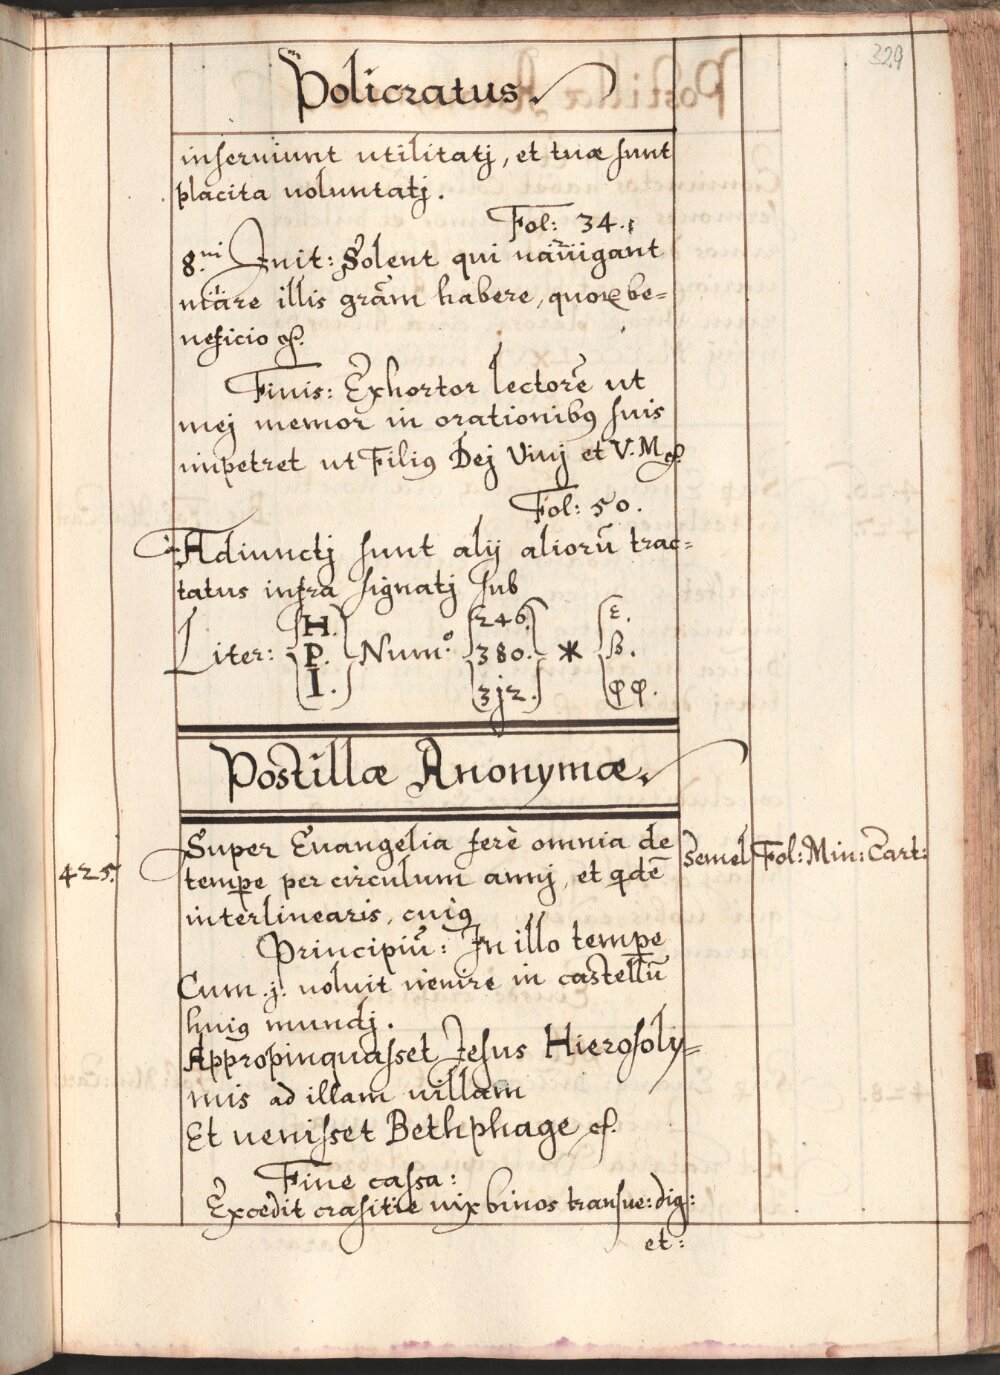 329
Policratus.
inseruiunt utilitatj, et tuæ sunt
placita uoluntatj.
Fol: 34.
8.ui Init: Solent qui nauigant
mare illis grãm habere, quorum be=
neficio &.
Finis: Exhortor lectorẽ ut
mej memor in orationibꝰ suis
impetret ut Filiꝰ Dej Viuj et V. M &.
Fol: 50.
Adiunctj sunt alij aliorũ trac=
tatus infra signatj sub
Liter: H. P. I. Num:o 246. 380. 3j2. * ε. ß. φφ.
Postillæ Anonymæ.
425. Super Euangelia ferè omnia de Semel Fol: Min: Cart:
tempe per circulum annj, et qdẽ
interlinearis, cuiꝰ
Principiũ: In illo tempe
Cum .j. uoluit uenire in castellũ
huiꝰ mundj.
Appropinquasset Jesus Hierosoly=
mis ad illam uillam
Et uenisset Bethphage &.
Fine cassa:
Excedit crasitie uix binos transue: dig:
et: